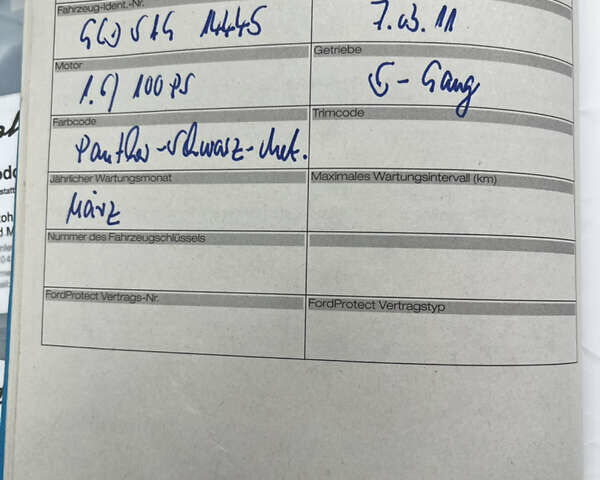 Fahrzeug-Ident.-Nr.
7.03.11
Motor
Getriebe
1.6l 100 PS
5-Gang
Farbcode
Trimcode
Panther-schwarz-met.
Jährlicher Wartungsmonat
Maximales Wartungsintervall (km)
März
Nummer des Fahrzeugschlüssels
FordProtect Vertrags-Nr.
FordProtect Vertragstyp